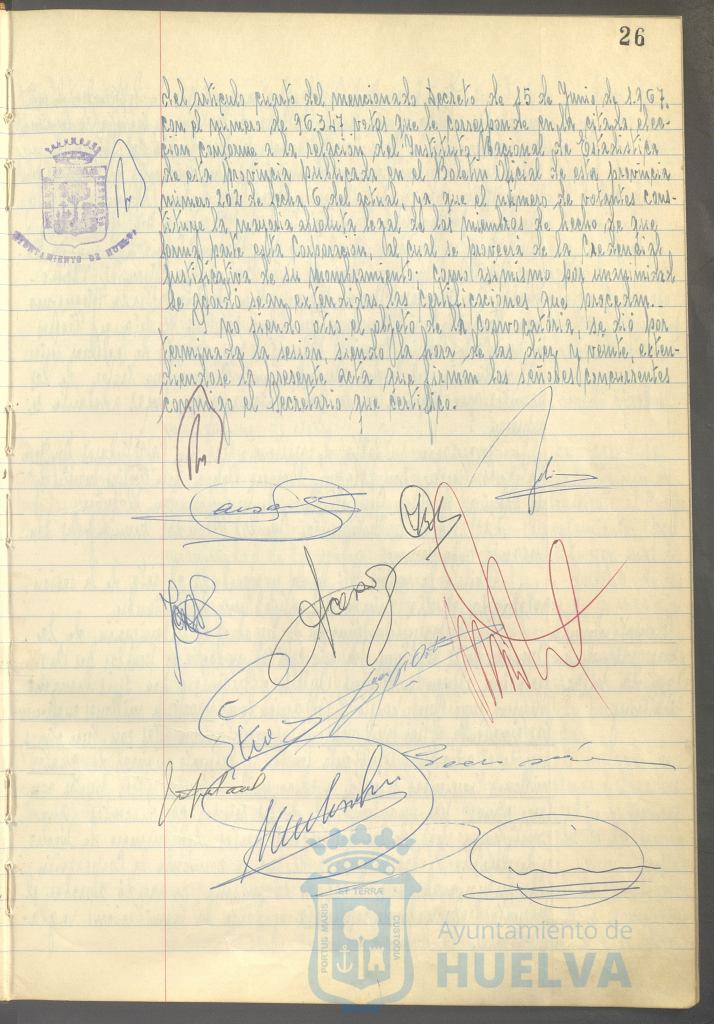 26
del artículo cuarto del mencionado Decreto de 15 de Junio de 1.967.
con el número de 96.347 votos que le corresponde en la citada elec-
ción conforme a la relación del Instituto Nacional de Estadística
de esta provincia publicada en el Boletín Oficial de esta provincia
número 202 de fecha 6 del actual, ya que el número de votantes cons-
tituye la mayoría absoluta legal de los miembros de hecho de que
forma parte esta Corporación, al cual se proveerá de la Credencial
justificativa de su nombramiento; como asimismo por unanimidad
de acordó sean extendidas las certificaciones que procedan.
No siendo otro el objeto de la convocatoria, se dió por
terminada la sesión, siendo la hora de las diez y veinte, exten-
diéndose la presente acta que firman los señores concurrentes
conmigo el Secretario que certifico.
AYUNTAMIENTO DE HUELVA
ET TERRÆ
PORTUS MARIS
CUSTODIA
Ayuntamiento de
HUELVA